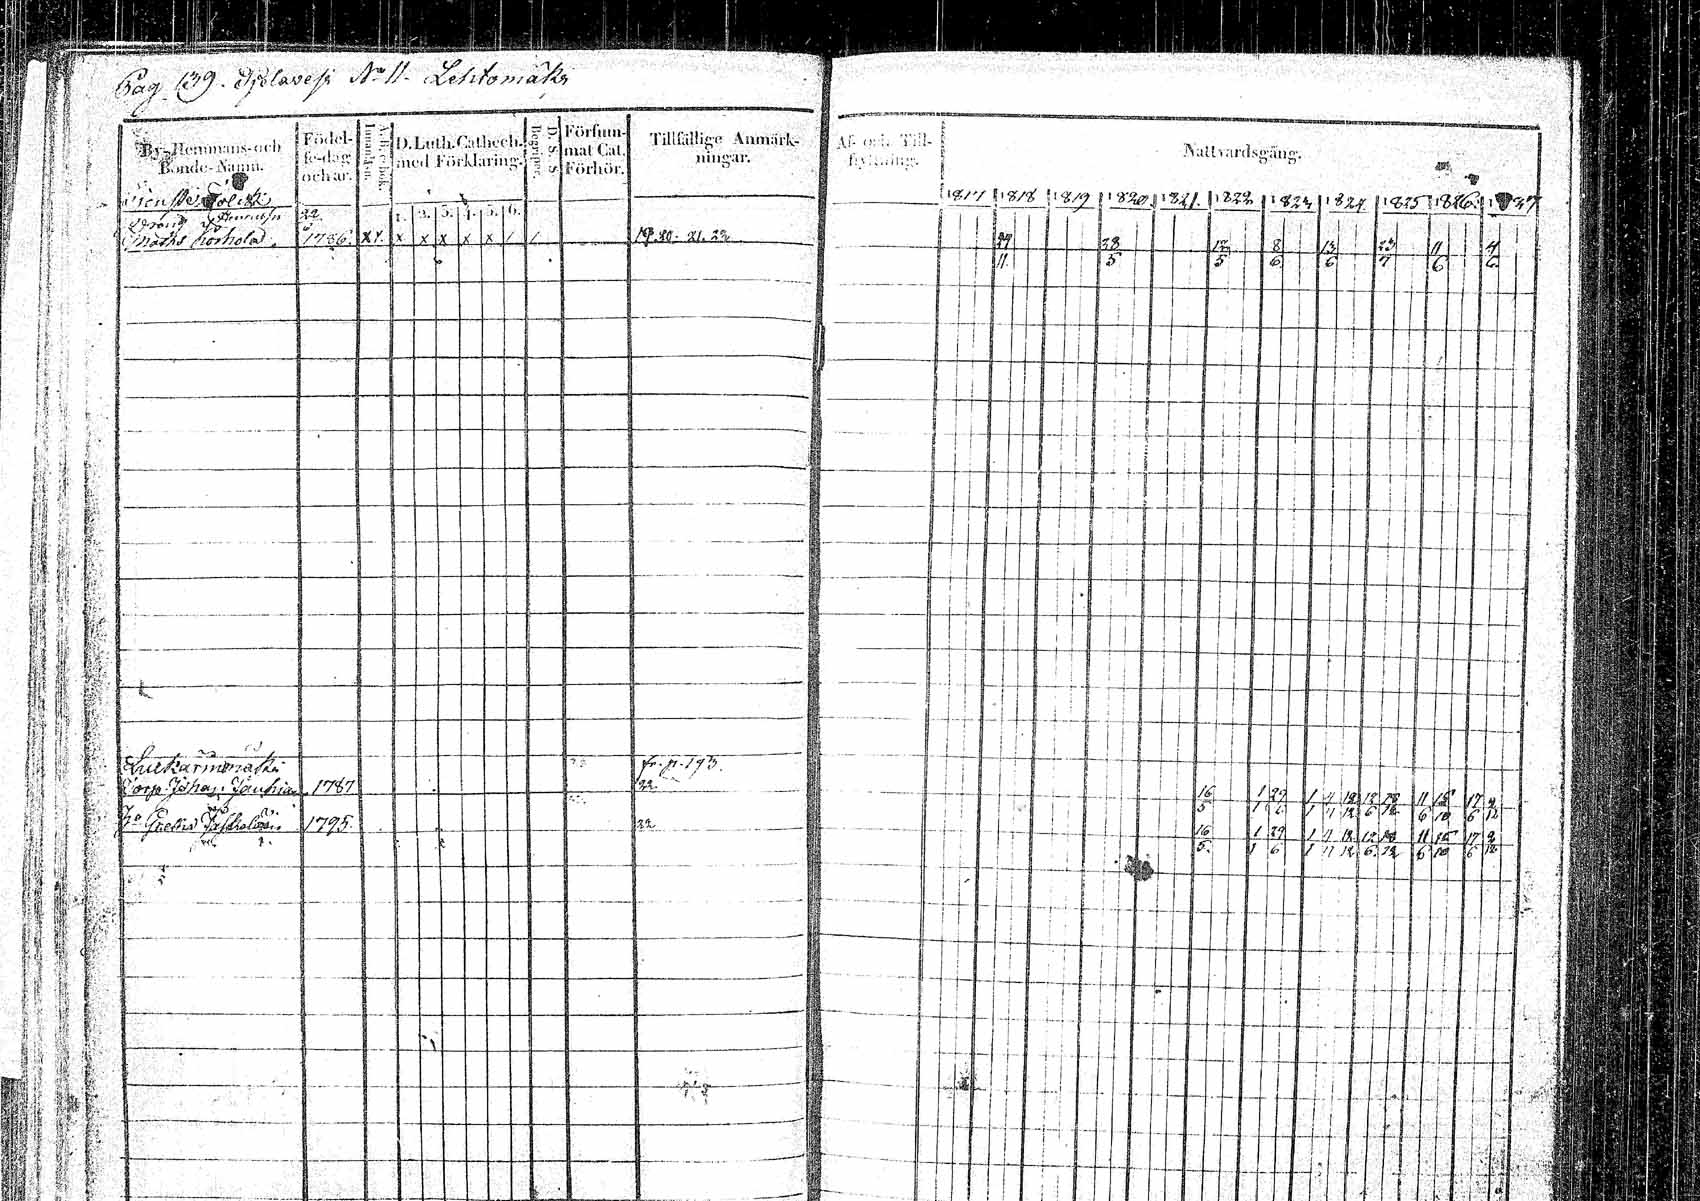 Pag. 139. No 11. Lehtomäki
By- Hemmans- och Bonde-Namn.
Födel-se-dag och år.
A. B. C. bok. Innanläsn.
D. Luth. Cathech. med Förklaring.
D. S. S. Begripet.
Försum-mat Cat. Förhör.
Tillfällige Anmärk-ningar.
Af- och Till-flyttning.
Nattvardsgång.
1817 1818 1819 1820. 1821. 1822 1823 1824 1825 1826. 1827
1. 2. 3. 4. 5. 6.
Dräng Henricsn 22.
Maths Korhola. 1786. x x. x x x x x / / 19. 20. 21. 22
24/11 28/5 12/5 8/6 13/6 23/7 11/6 4/6
Luckarinmäki fr. p. 193.
Torp. Johan 1787 22.
16/5 1/1 29/6 1/1 4/4 12/12 12/6 18/12 11/6 15/10 17/6 2/12
Greta 1795. 22
16/5. 1/1 29/6 1/1 4/4 12/12 12/6. 18/12 11/6 15/10 17/6 2/12